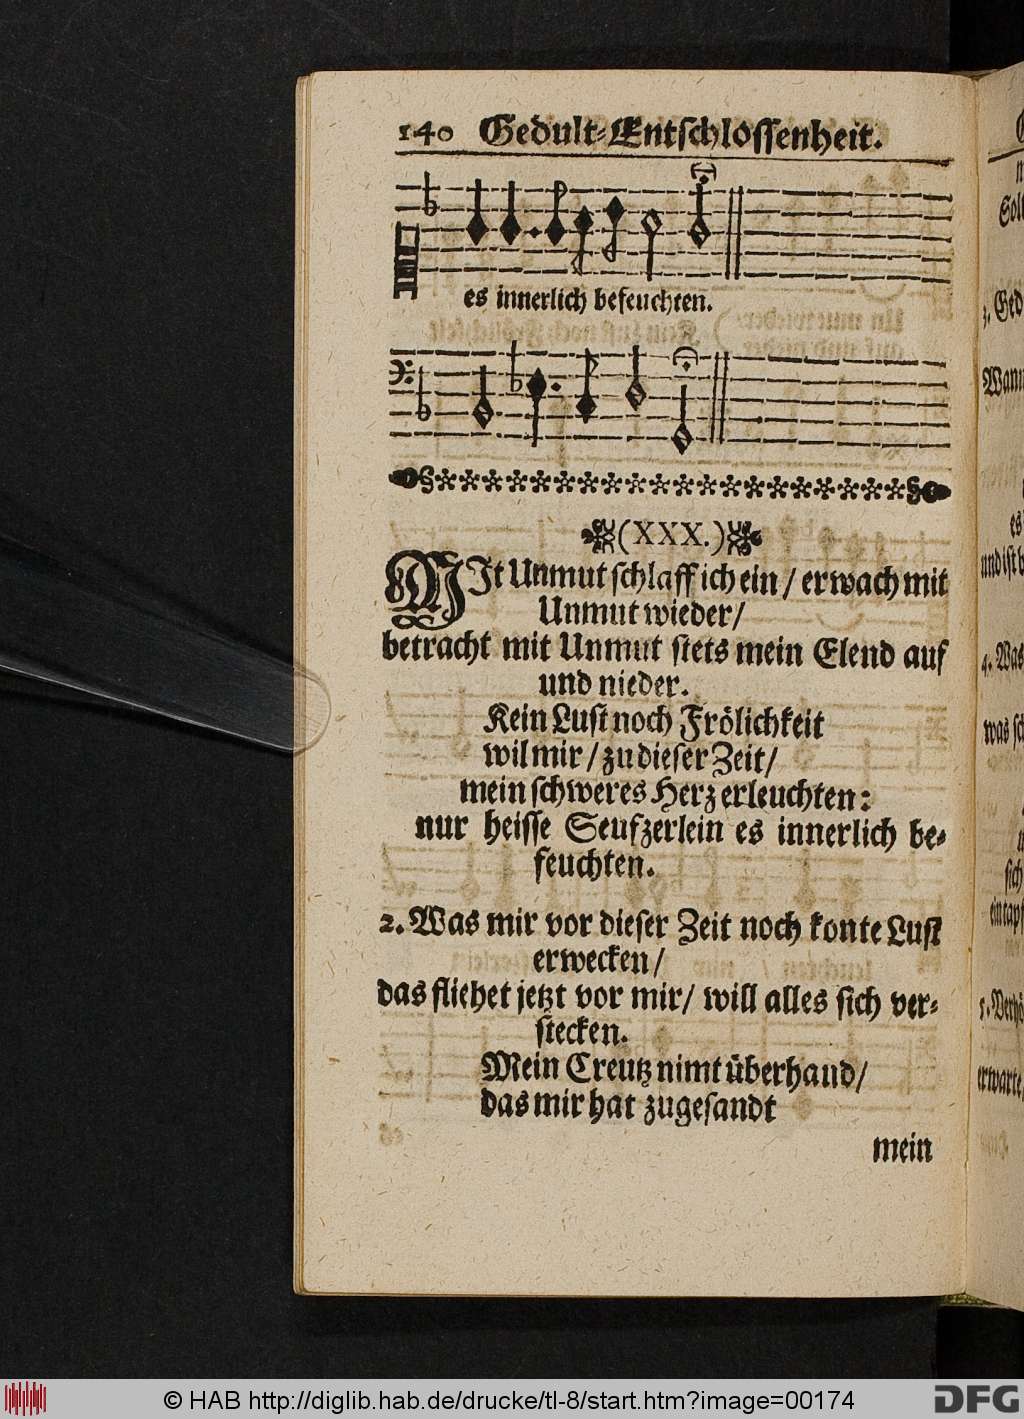 140 Gedult-Entschlossenheit.
es innerlich befeuchten.
(XXX.)
MIt Unmut schlaff ich ein / erwach mit
Unmut wieder /
betracht mit Unmut stets mein Elend auf
und nieder.
Kein Lust noch Frölichkeit
wil mir / zu dieser Zeit /
mein schweres Herz erleuchten:
nur heisse Seufzerlein es innerlich be-
feuchten.
2. Was mir vor dieser Zeit noch konte Lust
erwecken /
das fliehet jetzt vor mir / will alles sich ver-
stecken.
Mein Creutz nimt überhand /
das mir hat zugesandt
mein
Soll
3. Ged
Wann
es
und ist b
4. Was
was sch
sich
1. Verhö
erwarte
© HAB http://diglib.hab.de/drucke/tl-8/start.htm?image=00174
DFG